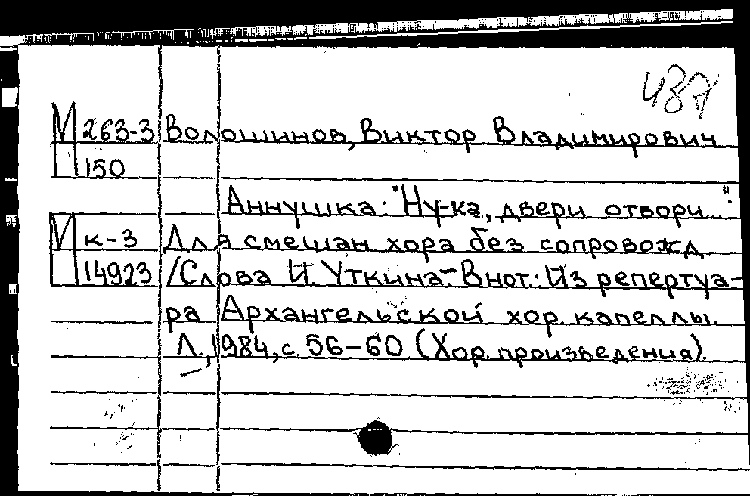 437
М 263-3 Волошинов, Виктор Владимирович
150
Аннушка: "Ну-ка, двери отвори..."
М к-3 Для смешан хора без сопровожд
14923 /Слова И. Уткина.- В нот.: Из репертуа-
ра Архангельской хор. капеллы.
Л., 1984, с. 56-60 (Хор. произведения).